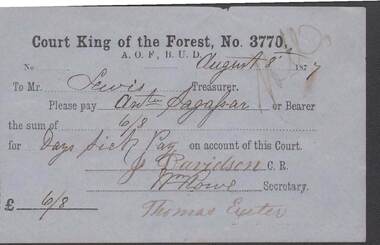 Court King of the Forest, No. 3770,
A. O. F., B. U. D.
No August 8 1877
To Mr. Lewis Treasurer.
Please pay or Bearer
the sum of 6/8
for Days Sick Pay on account of this Court.
J Davidson C. R.
Wm Rowe Secretary.
£ 6/8
Thomas Exeter